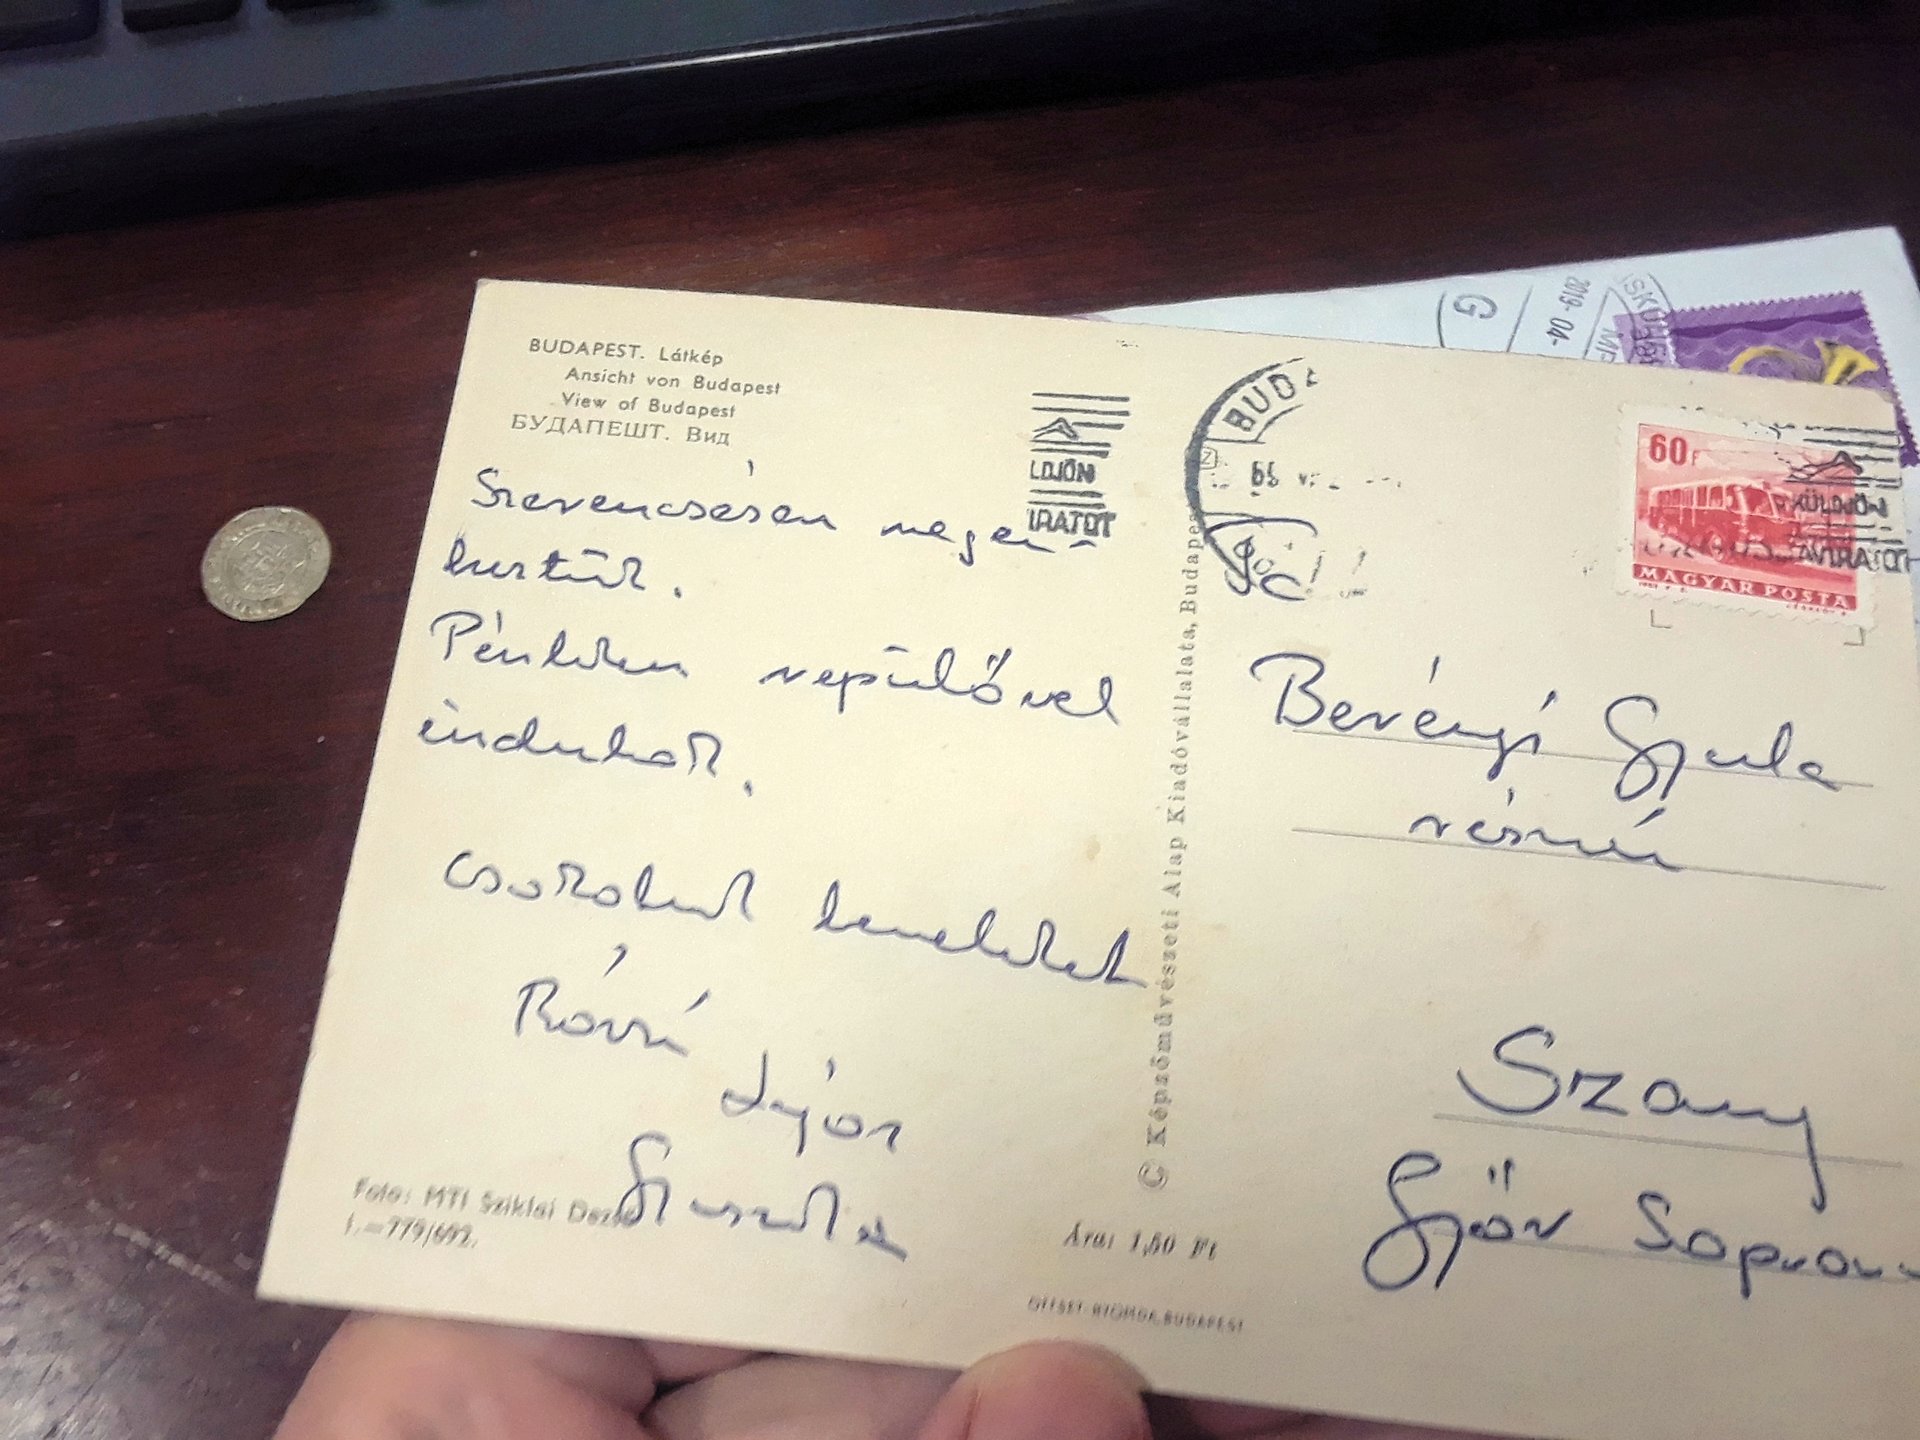 BUDAPEST. Látkép
Ansicht von Budapest
View of Budapest
БУДАПЕШТ. Вид
Szerencsésen megér-
keztünk.
Pénteken repülővel
indulunk.
Csókolunk benneteket
Foto: MTI Sziklai Dezső
1.—779/692.
© Képzőművészeti Alap Kiadóvállalata, Budapest
Ára: 1,50 Ft
OFFSET NYOMDA, BUDAPEST
LDJÖN
IRATOT
BUDA
65
60 F
MAGYAR POSTA
KÜLDJÖN
TÁVIRATOT
Berényi Gyula
részére
Szany
Győr Sopron
G
2019-04-